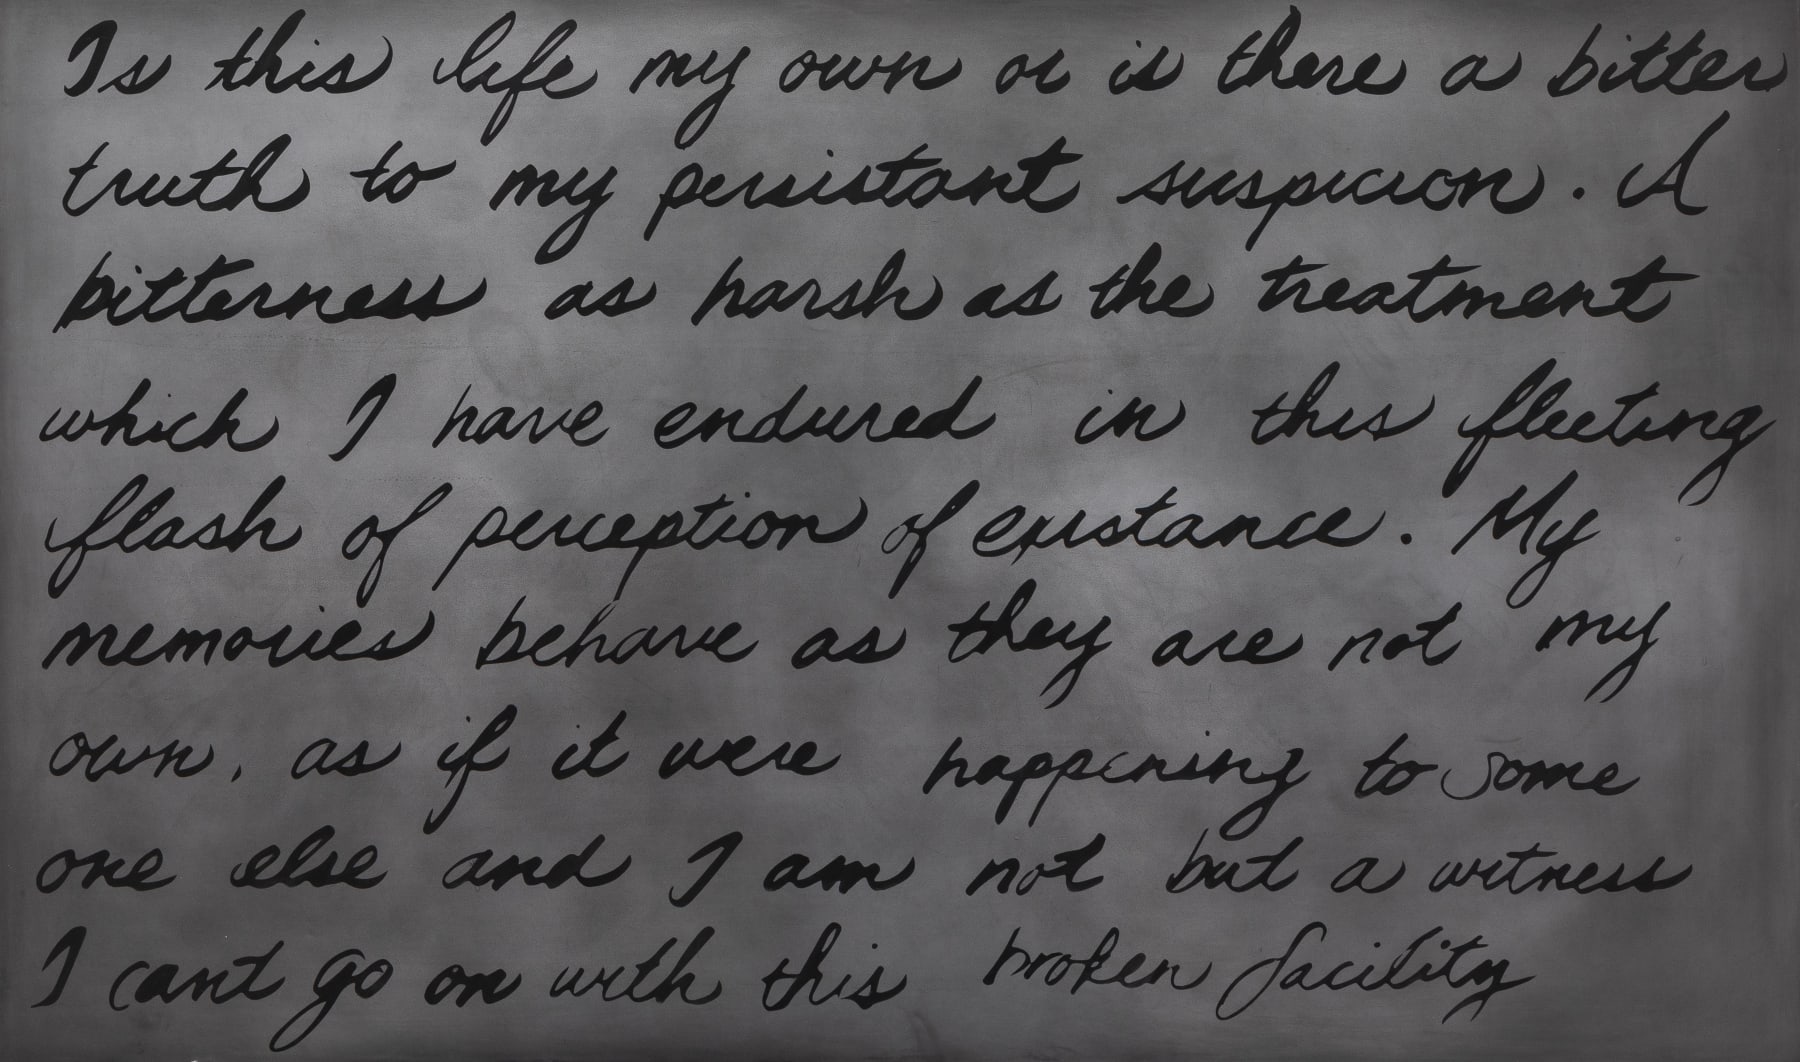 Is this life my own or is there a bitter
truth to my persistant suspicion. A
bitterness as harsh as the treatment
which I have endured in this fleeting
flash of perception of existance. My
memories behave as they are not my
own, as if it were happening to some
one else and I am not but a witness
I cant go on with this broken facility